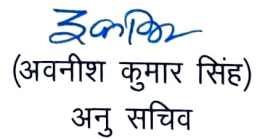 (अवनीश कुमार सिंह)
अनु सचिव